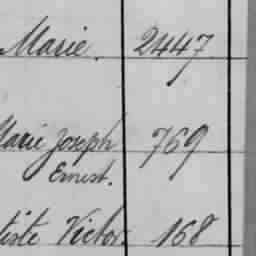 Marie. 2447
Marie Joseph 769
Ernest.
tiste Victor. 168